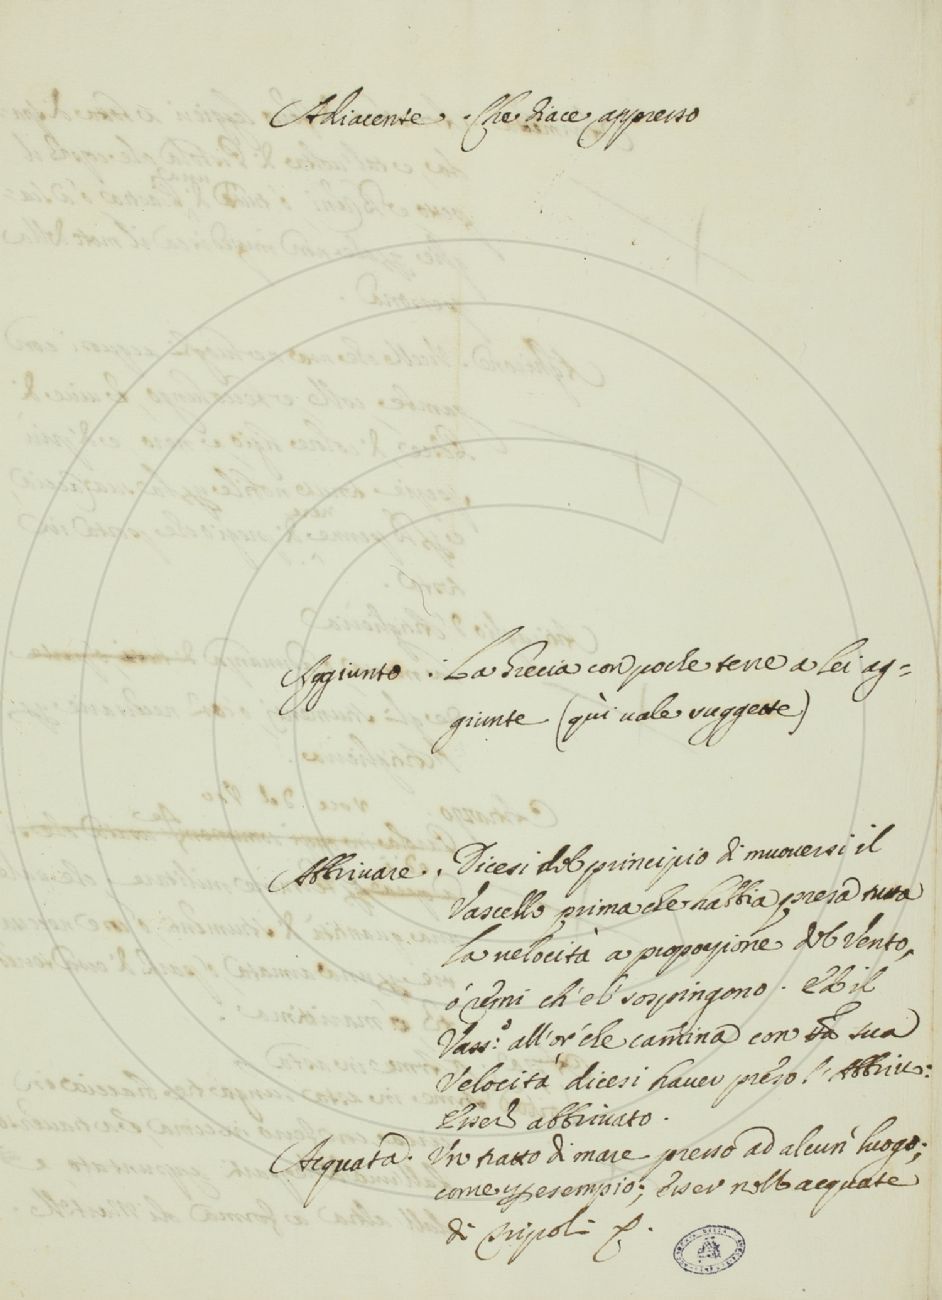 Adiacente. Che giace appresso
Aggiunto. La Grecia con poche terre a lei ag=
giunte (qui vale suggette)
Abbrivare. Dicesi del principio di muoversi il
Vascello prima che habbia presa tutta
la velocità a proporzione del Vento,
ò remi ch'el sospingono. Ed il
Vass:º all'or che camina con sua
velocità dicesi haver preso l'Abbriv:
Esser abbrivato.
Acquata. Un tratto di mare presso ad alcun luogo;
come per esempio; Esser nell acquate
di Tripoli